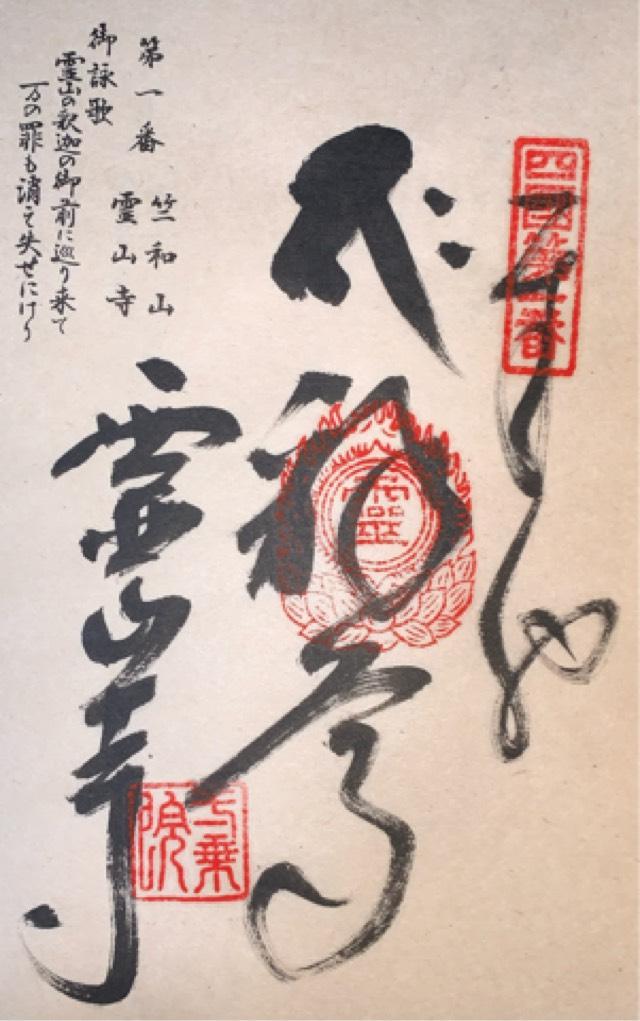 四國第一番
靈
霊山寺
一乘院
第一番
竺和山
霊山寺
御詠歌
霊山の釈迦の御前に巡り来て
万の罪も消え失せにけり